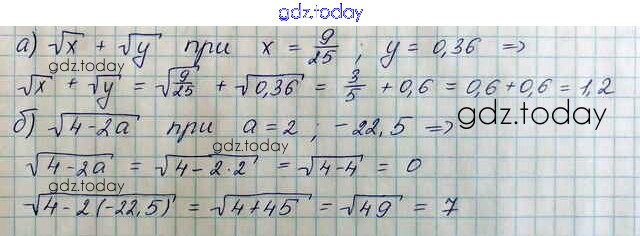 gdz.today
а) √x + √y при x = 9/25 ; y = 0,36 =>
gdz.today
√x + √y = √(9/25) + √0,36 = 3/5 + 0,6 = 0,6 + 0,6 = 1,2
gdz.today
б) √(4-2a) при a = 2 ; -22,5 =>
gdz.today
√(4-2a) = √(4-2·2) = √(4-4) = 0
gdz.today
√(4-2(-22,5)) = √(4+45) = √49 = 7